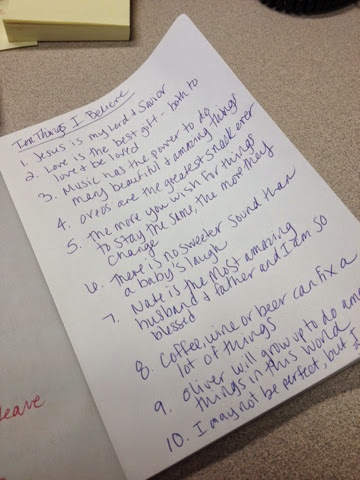 Ten Things I Believe
1. Jesus is my Lord & Savior
2. Love is the best gift - both to
love & be loved
3. Music has the power to do
many beautiful & amazing things
4. Oreos are the greatest snack ever
5. The more you wish for things
to stay the same, the more they
change
6. There is no sweeter sound than
a baby's laugh
7. Nate is the most amazing
husband & father and I am so
blessed
8. Coffee, wine or beer can fix a
lot of things
9. Oliver will grow up to do
things in this world
10. I may not be perfect, but
leave